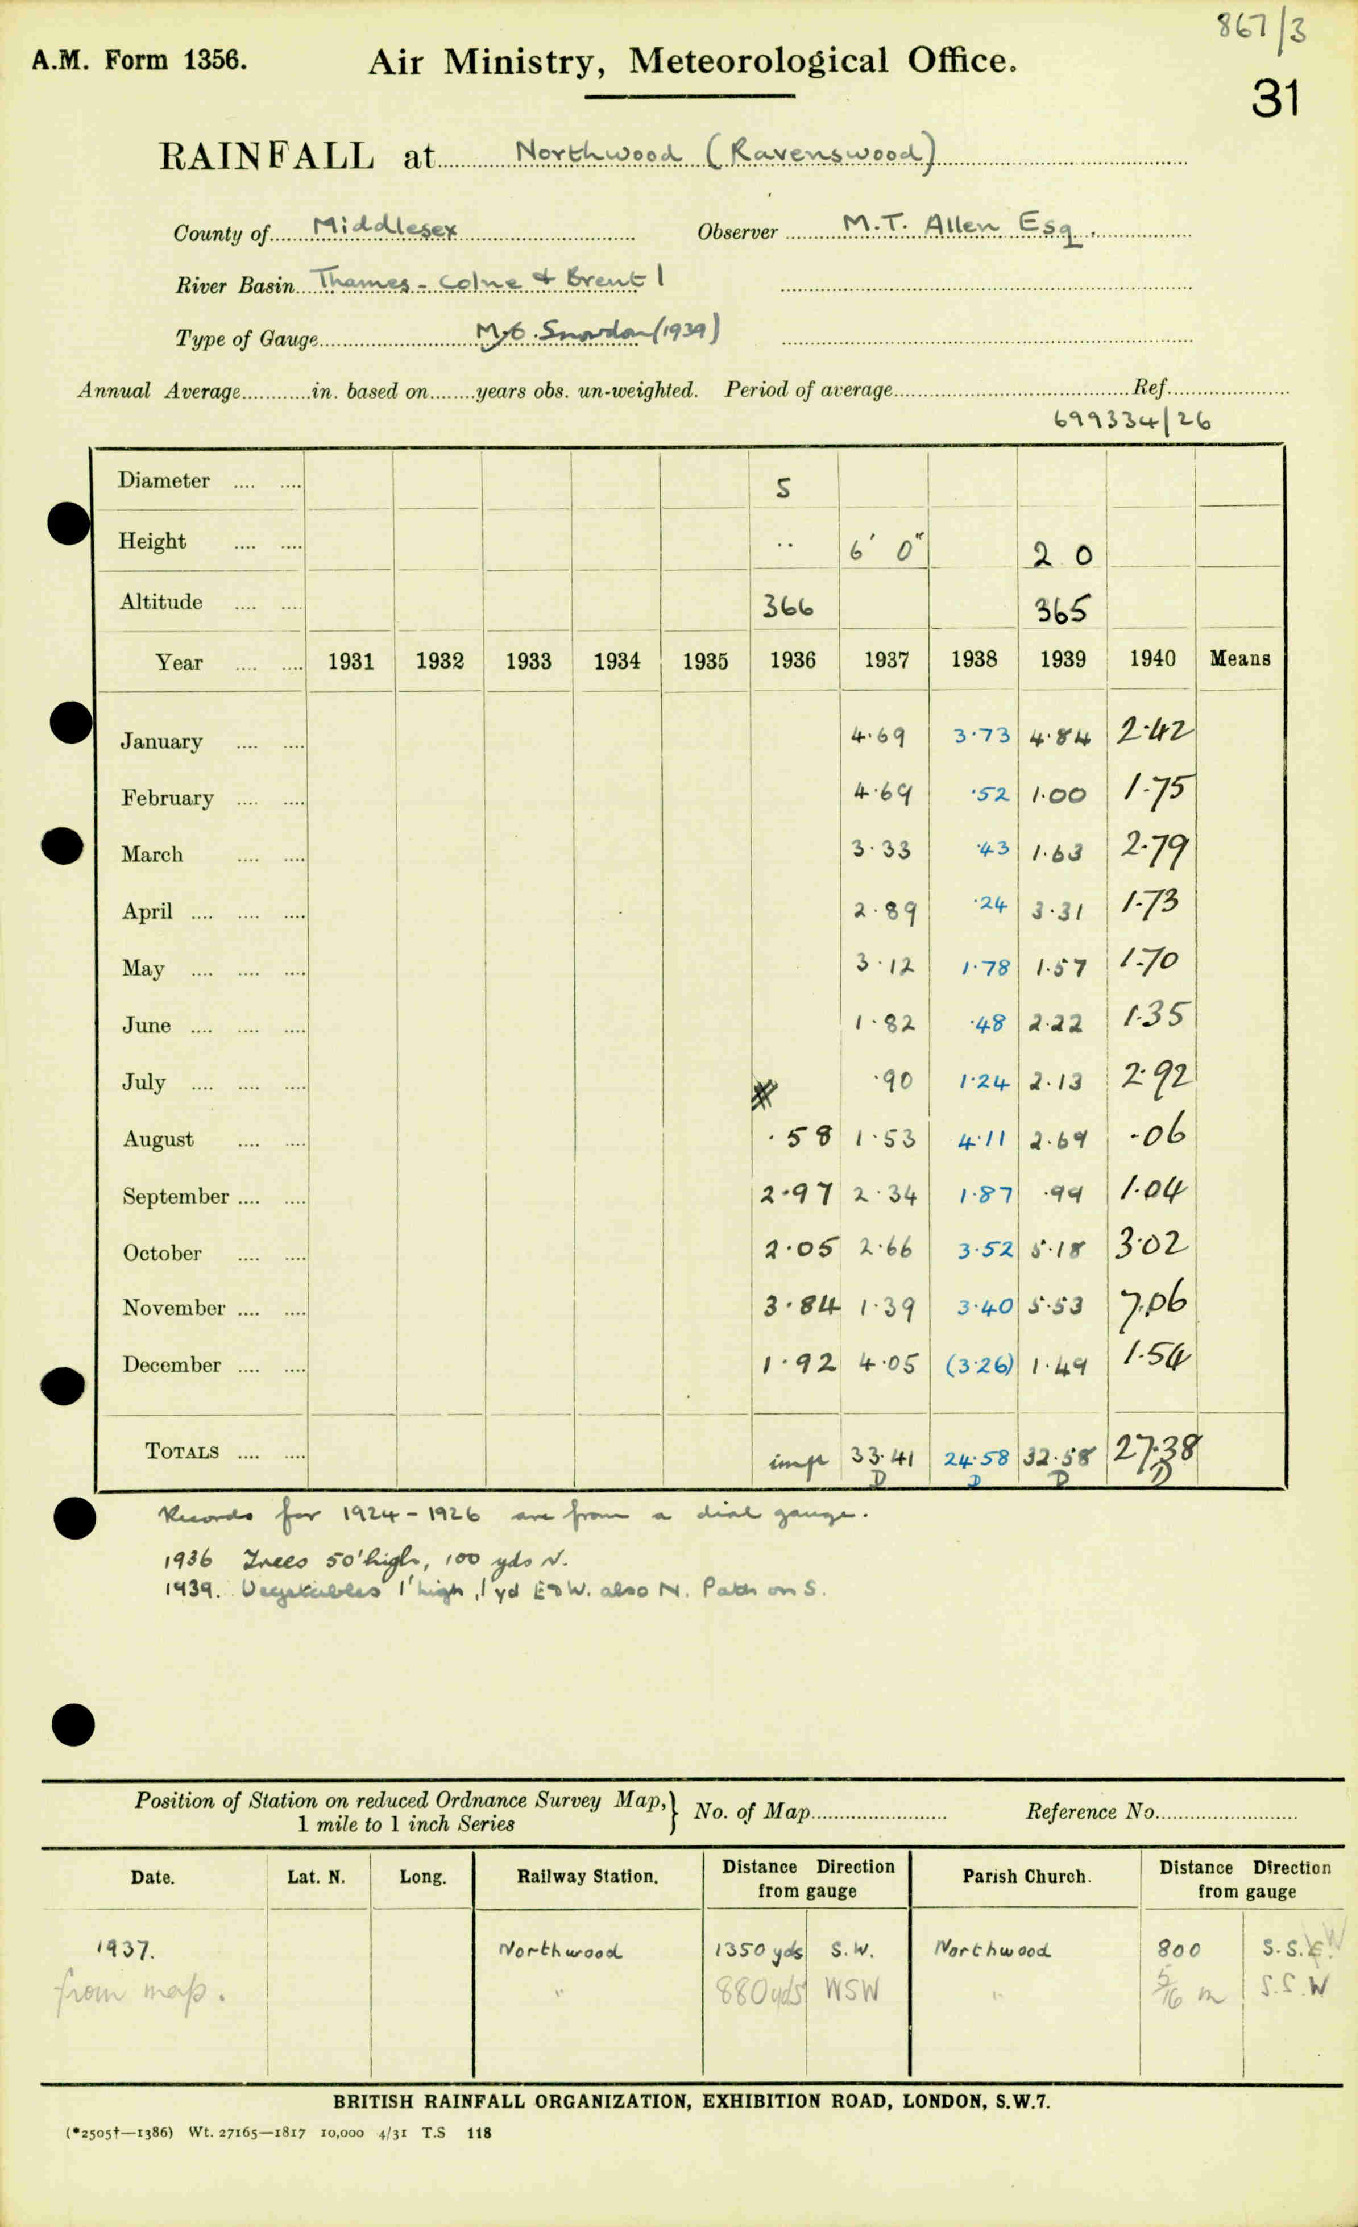 867/3
A.M. Form 1356. Air Ministry, Meteorological Office.
31
RAINFALL at Northwood (Ravenswood)
County of Middlesex Observer M.T. Allen Esq.
River Basin Thames - Colne & Brent 1
Type of Gauge M.O. Snowdon (1939)
Annual Average in. based on years obs. un-weighted. Period of average Ref.
699334/26
Diameter .... .... 5
Height .... .... .. 6' 0" 2 0
Altitude .... .... 366 365
Year .... .... 1931 1932 1933 1934 1935 1936 1937 1938 1939 1940 Means
January .... .... 4.69 3.73 4.84 2.42
February .... .... 4.69 .52 1.00 1.75
March .... .... 3.33 .43 1.63 2.79
April .... .... .... 2.89 .24 3.31 1.73
May .... .... .... 3.12 1.78 1.57 1.70
June .... .... .... 1.82 .48 2.22 1.35
July .... .... .... .90 1.24 2.13 2.92
August .... .... .58 1.53 4.11 2.69 .06
September .... .... 2.97 2.34 1.87 .99 1.04
October .... .... 2.05 2.66 3.52 5.18 3.02
November .... .... 3.84 1.39 3.40 5.53 7.06
December .... .... 1.92 4.05 (3.26) 1.49 1.54
TOTALS .... .... imp 33.41 24.58 32.58 27.38
D D D D
Records for 1924-1926 are from a dial gauge.
1936 Trees 50' high, 100 yds N.
1939. Vegetables 1' high, 1 yd E & W. also N. Path on S.
Position of Station on reduced Ordnance Survey Map, } No. of Map Reference No.
1 mile to 1 inch Series
Date. Lat. N. Long. Railway Station. Distance Direction from gauge Parish Church. Distance Direction from gauge
1937. Northwood 1350 yds S.W. Northwood 800 S.S.W
from map. " 880 yds WSW " 5/16 m S.S.W
BRITISH RAINFALL ORGANIZATION, EXHIBITION ROAD, LONDON, S.W.7.
(*2505†—1386) Wt. 27165—1817 10,000 4/31 T.S 118